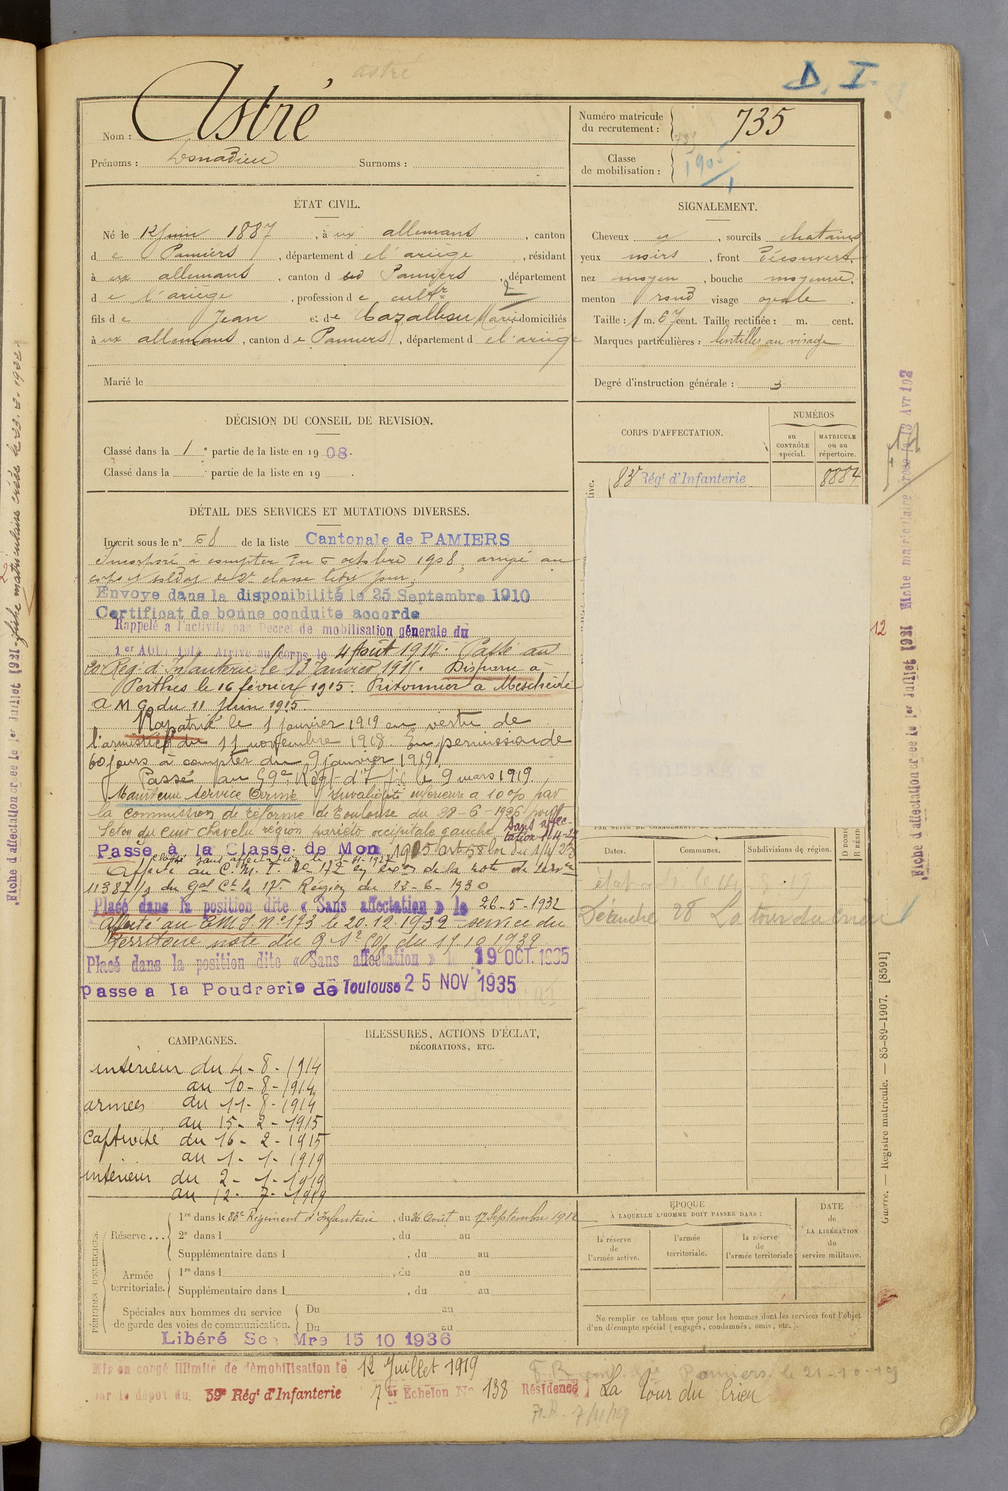 astré
D. I.
Nom : Astré
Prénoms : Donadieu Surnoms :
Numéro matricule du recrutement : 735
Classe de mobilisation : 1905
ÉTAT CIVIL.
Né le 12 Juin 1887, à ux allemans, canton
de Pamiers, département de l'ariège, résidant
à ux allemans, canton de Pamiers, département
de l'ariège, profession de cultr
fils de Jean et de Cazalbou Marie domiciliés
à ux allemans, canton de Pamiers, département de l'ariège
Marié le
SIGNALEMENT.
Cheveux et, sourcils chatains
yeux noirs, front découvert
nez moyen, bouche moyenne
menton rond visage ovale
Taille : 1 m. 67 cent. Taille rectifiée : m. cent.
Marques particulières : lentilles au visage
Degré d'instruction générale : 3
DÉCISION DU CONSEIL DE REVISION.
Classé dans la 1e partie de la liste en 1908.
Classé dans la partie de la liste en 19
CORPS D'AFFECTATION.
NUMÉROS
au CONTRÔLE spécial.
MATRICULE ou au répertoire.
83e Régt d'Infanterie 8884
DÉTAIL DES SERVICES ET MUTATIONS DIVERSES.
Inscrit sous le n° 58 de la liste Cantonale de PAMIERS
Incorporé à compter du 5 octobre 1908, arrivé au
corps et soldat de 2e classe ledit jour.
Envoyé dans la disponibilité le 25 Septembre 1910
Certificat de bonne conduite accordé
Rappelé à l'activité par Décret de mobilisation générale du
1er Août 1914 Arrivé au corps le 4 Août 1914. Passé au
20e Reg. d'Infanterie le 23 Janvier 1915. Disparu à
Perthes le 16 février 1915. Prisonnier à Meschede
A M G du 11 Juin 1915
Rapatrié le 1 janvier 1919 en vertu de
l'armistice du 11 novembre 1918. En permission de
60 jours à compter du 9 janvier 1919.
Passé au 59e Régt d'Inf le 9 mars 1919,
Maintenu service armé Invalidité inférieure à 10% par
la commission de réforme de Toulouse du 28-6-1926 pour
lésion du cuir chevelu région pariéto occipitale gauche
Sans affectation
Passé à la Classe de Mon 1905 art 58 loi du
classé sans affectation le
Affecté au C.M.I. No 172 en vertu de la note de service
11387 1/1 du Gal Ct la 17e Région du 12-6-1930
Placé dans la position dite « Sans affectation » le 26-5-1932
Affecté au CMI. No 173 le 20.12.1932 service du
Territoire note du
Placé dans la position dite « Sans affectation » le 19 OCT. 1935
Passé à la Poudrerie de Toulouse 25 NOV 1935
Dates. Communes. Subdivisions de région.
Décembre 28 La tour du Crieu
CAMPAGNES.
intérieur du 4-8-1914
au 10-8-1914
armées du 11-8-1914
au 15-2-1915
Captivité du 16-2-1915
au 1-1-1919
intérieur du 2-1-1919
au 12-7-1919
BLESSURES, ACTIONS D'ÉCLAT,
DÉCORATIONS, ETC.
PÉRIODES D'EXERCICES.
Réserve... 1re dans le 83e Régiment d'Infanterie, du 26 Août au 17 Septembre 1912
2e dans l, du au
Supplémentaire dans l, du au
Armée territoriale. 1re dans l, du au
Supplémentaire dans l, du au
Spéciales aux hommes du service Du au
de garde des voies de communication. Du au
Libéré Ser Mre 15 10 1936
ÉPOQUE
À LAQUELLE L'HOMME DOIT PASSER DANS :
la réserve de l'armée active.
l'armée territoriale.
la réserve de l'armée territoriale
DATE de LA LIBÉRATION du service militaire.
Ne remplir ce tableau que pour les hommes dont les services font l'objet
d'un décompte spécial (engagés, condamnés, omis, etc.).
Mis en congé illimité de démobilisation le 12 Juillet 1919
par le dépôt du 59e Régt d'Infanterie 7er Echelon No 138 Résidence La tour du Crieu
Pamiers le 21-10-19
7/11/19
Guerre. — Registre matricule. — 85-89-1907. [8591]
Fiche d'affectation créée le 1er Juillet 1931 Fiche matriculaire créée le 13 Avr 192
12
Fiche d'affectation créée le 1er Juillet 1931. Fiche matriculaire créée le